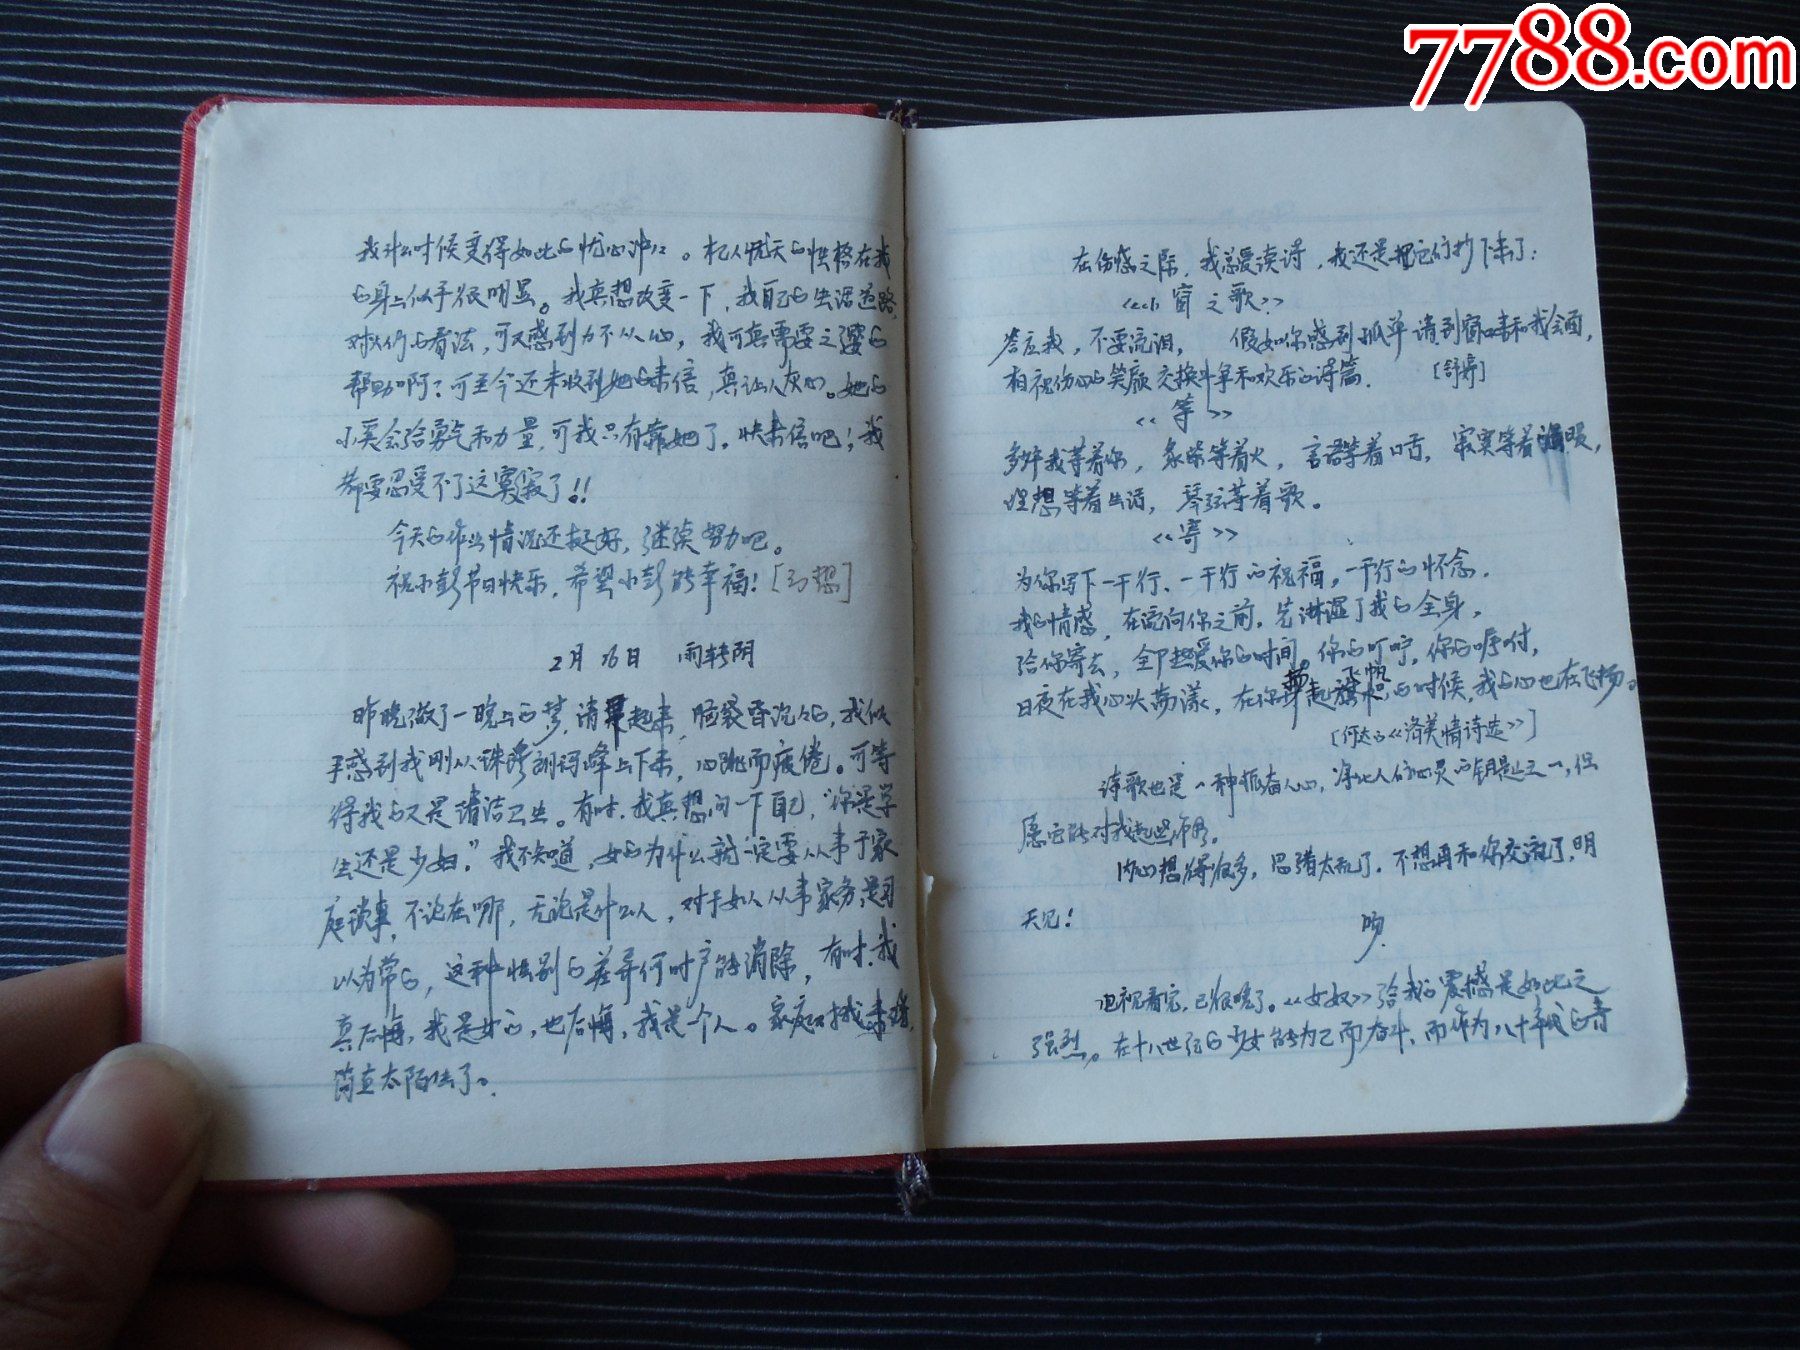 7788.com
我什么时候变得如此的忧心冲冲。杞人忧天的性格在我
的身上似乎很明显。我真想改变一下，我自己的生活道路，
对人们的看法，可又感到力不从心，我可真需要之璎的
帮助啊？可至今还未收到她的来信，真让人灰心。她的
小奚会给勇气和力量，可我只有靠她了。快来信吧！我
都要忍受不了这寞寂了！！
今天的作业情况还挺好，继续努力吧。
祝小彭节日快乐，希望小彭能幸福！
2月16日 雨转阴
昨晚做了一晚上的梦，清早起来，脑袋昏沉沉的，我似
乎感到我刚从珠穆朗玛峰上下来，心跳而疲倦。可等
待我的又是清洁卫生。有时，我真想问一下自己，“你是学
生还是少妇。”我不知道，女的为什么就一定要从事于家
庭琐事，不论在哪，无论是什么人，对于女人从事家务，是习
以为常的，这种性别的差异何时产能消除，有时，我
真后悔，我是女的，也后悔，我是一个人。家庭对我来讲，
简直太陌生了。
在伤感之际，我总爱读诗，我还是把它们抄下来了：
《小窗之歌》
答应我，不要流泪， 假如你感到孤单请到窗口来和我会面，
相视伤心的笑颜 交换斗争和欢乐的诗篇． [舒婷]
《等》
多少年我等着你，象柴等着火，言语等着口舌，寂寞等着
理想等着生活，琴弦等着歌。
《寄》
为你写下一千行、一千行的祝福，一千行的怀念．
我的情感，在流向你之前，先淋湿了我的全身，
给你寄去，全部热爱你的时间。你的叮咛，你的嘱付，
日夜在我心头荡漾，在你升起飞帆的时候，我的心也在飞扬。
[何达的《洛美情诗选》]
诗歌也是一种振奋人心，净化人们心灵的钥匙之一，但
愿它能对我起些作用．
内心想得很多，思绪太乱了．不想再和你交流了，明
天见！ 吻．
电视看完，已很晚了。《女奴》给我的震撼是如此之
强烈。在十八世纪的少女能为己而奋斗，而作为八十年代的青